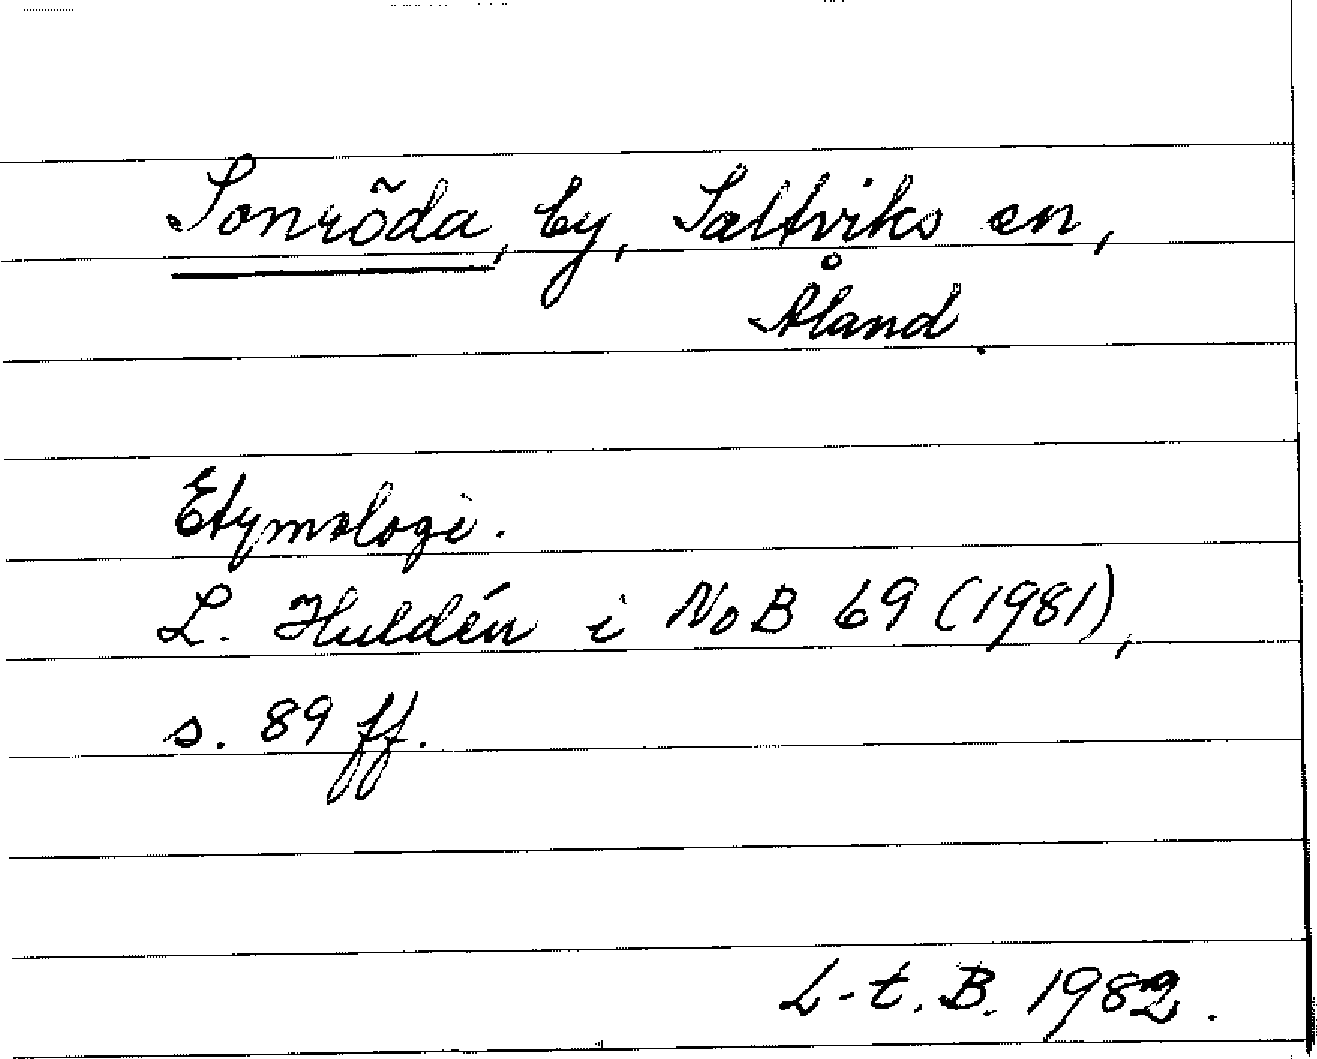 Sonröda, by, Saltviks sn,
Åland.
Etymologi.
L. Huldén i NoB 69 (1981),
s. 89 ff.
L-t. B. 1982.